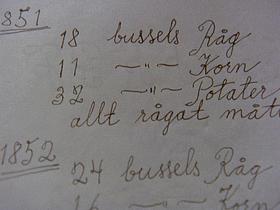 1851
18 bussels Råg
11 —"— Korn
32 —"— Potater
allt rågat
1852
24 bussels Råg
16 —"— Korn